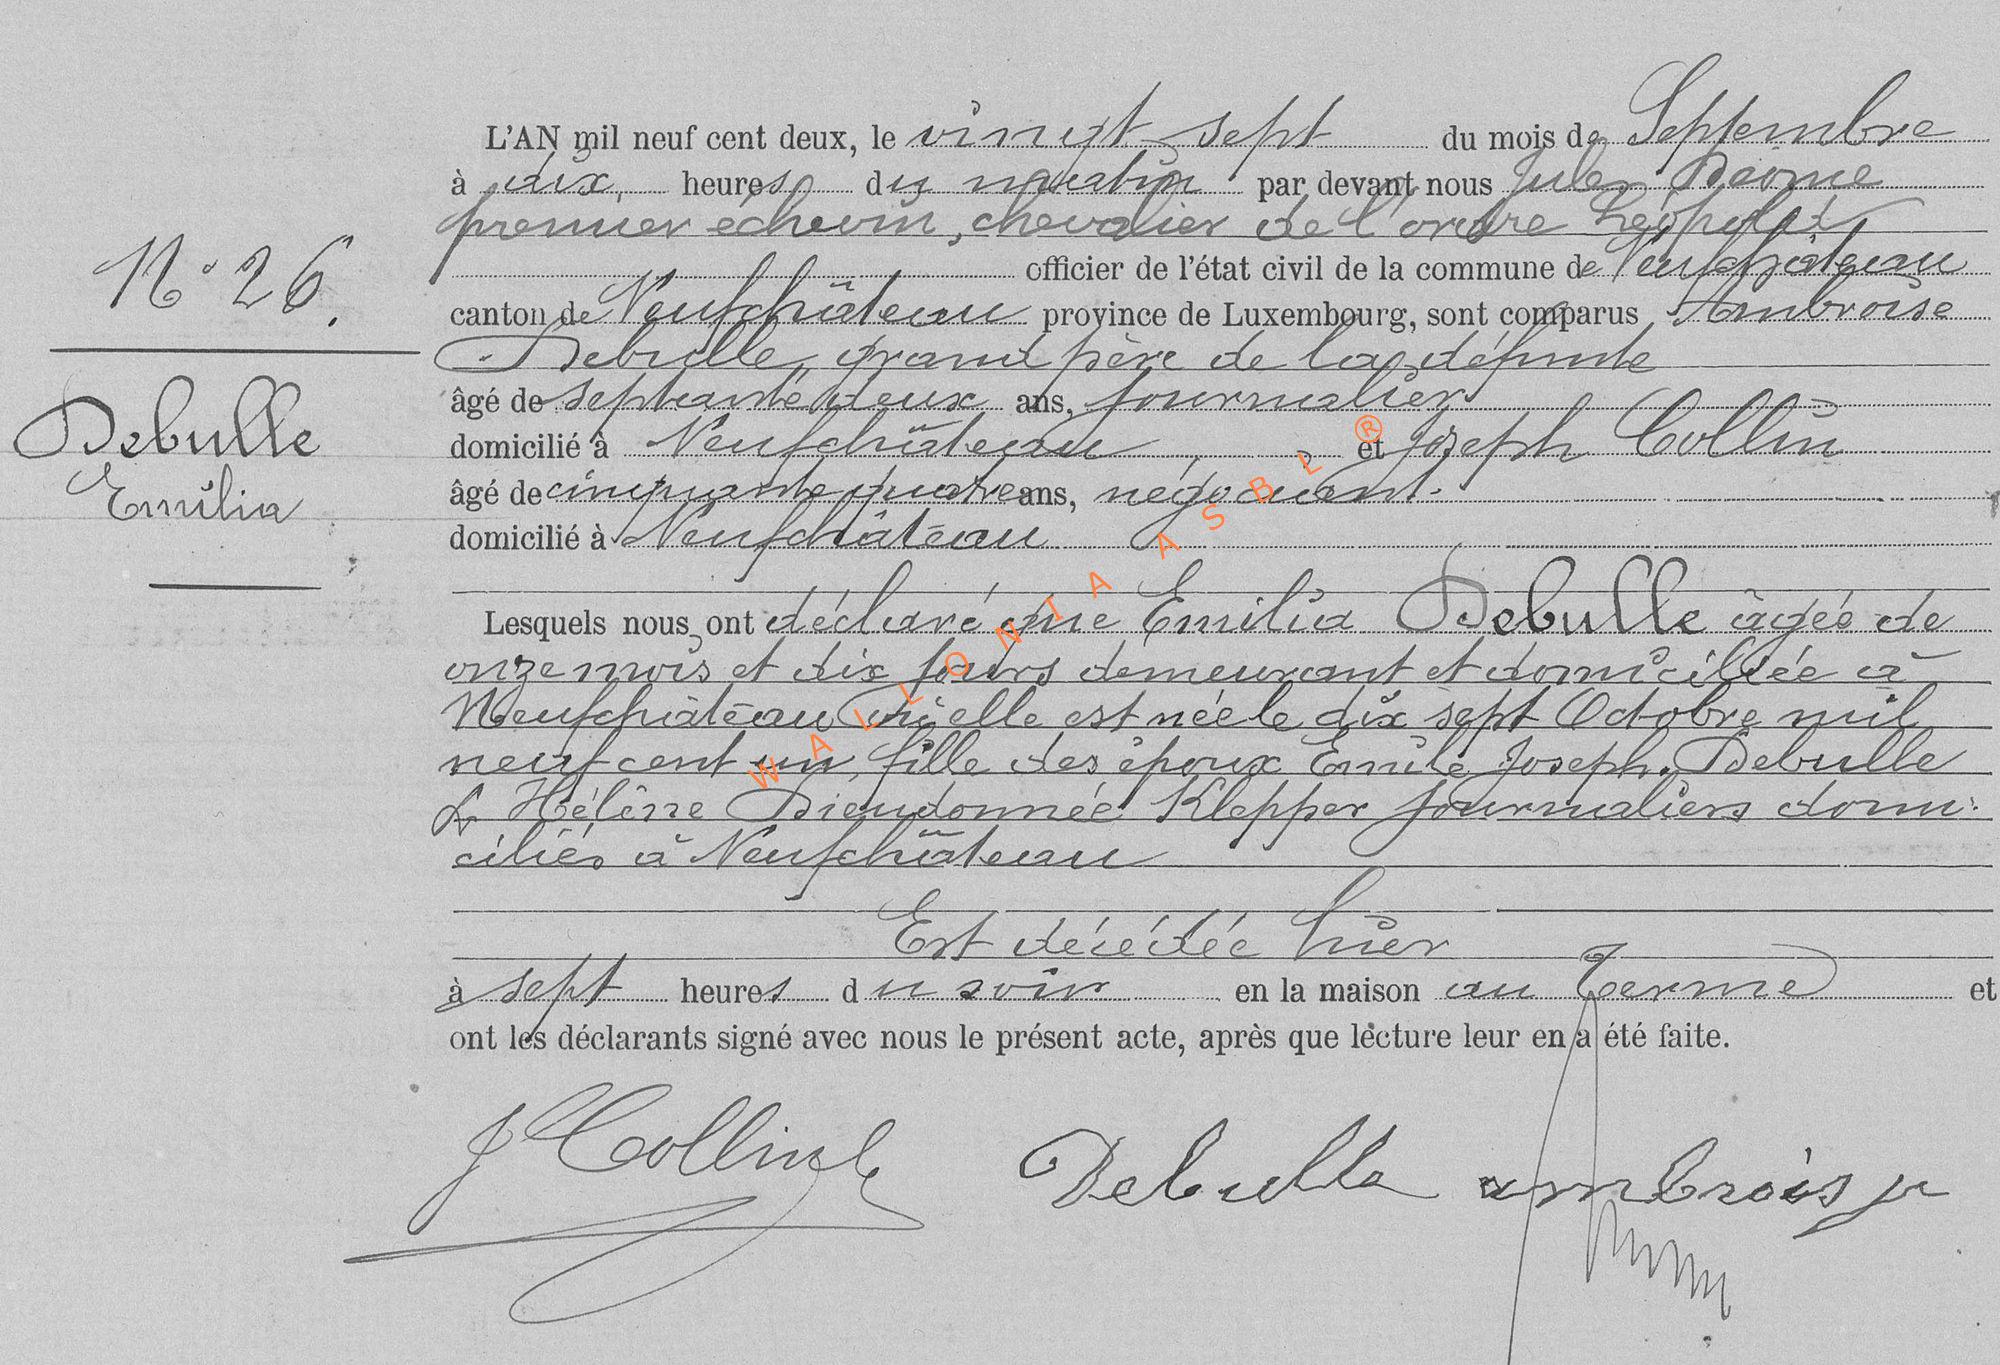 N° 26.
Debulle
Emilia
L'AN mil neuf cent deux, le vingt sept du mois de Septembre
à dix heures du matin par devant nous Jules
premier échevin, chevalier de l'ordre Léopold
officier de l'état civil de la commune de Neufchâteau
canton de Neufchâteau province de Luxembourg, sont comparus Ambroise
Debulle, grand père de la défunte
âgé de septante deux ans, journalier
domicilié à Neufchâteau, et Joseph Collin
âgé de cinquante quatre ans, négociant.
domicilié à Neufchâteau
Lesquels nous ont déclaré que Emilia Debulle âgée de
onze mois et dix jours demeurant et domiciliée à
Neufchâteau où elle est née le dix sept Octobre mil
neuf cent un, fille des époux Emile Joseph Debulle
& Hélène Dieudonnée Klepper journaliers domi-
ciliés à Neufchâteau
Est décédée hier
à sept heures du soir en la maison au Terme et
ont les déclarants signé avec nous le présent acte, après que lecture leur en a été faite.
J Collin Debulle ambroise
WALLONIA ASBL ®